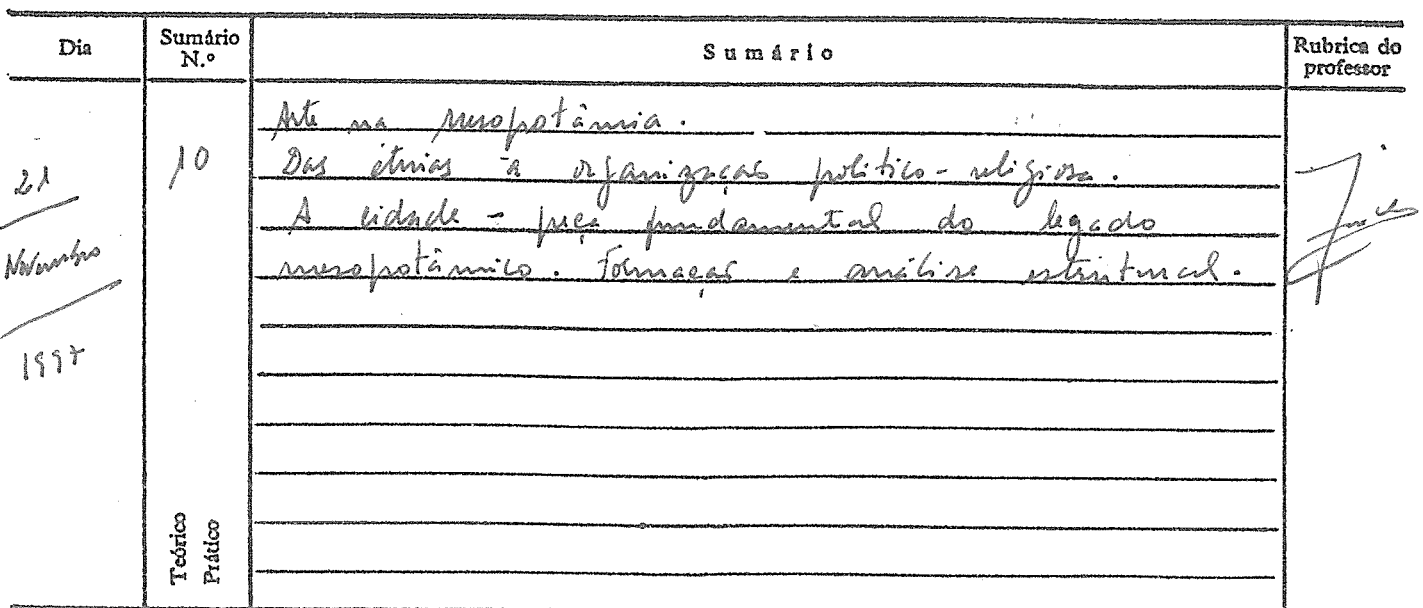 Dia
Sumário N.º
Sumário
Rubrica do professor
21
Novembro
1997
10
Arte na mesopotâmia.
Das étnias à organização político-religiosa.
A cidade - peça fundamental do legado
mesopotâmico. Formação e análise estrutural.
Teórico
Prático